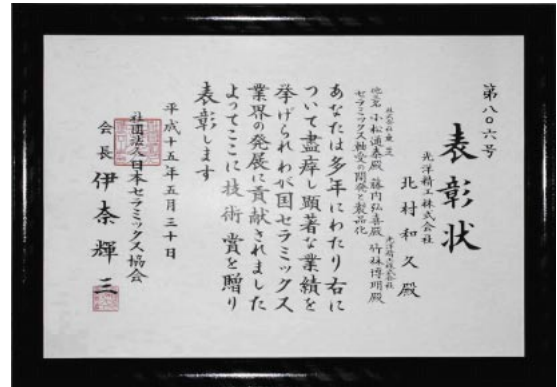 第八〇六号
表彰状
光洋精工株式会社
北村和久殿
株式会社東芝 光洋精工株式会社
他名 小松通泰殿 藤内弘喜殿 竹林博明殿
セラミックス軸受の開発と製品化
あなたは多年にわたり右に
ついて盡瘁し顕著な業績を
挙げられわが国セラミックス
業界の発展に貢献されました
よってここに技術賞を贈り
表彰します
平成十五年五月三十日
社団法人日本セラミックス協会
会長 伊奈輝三